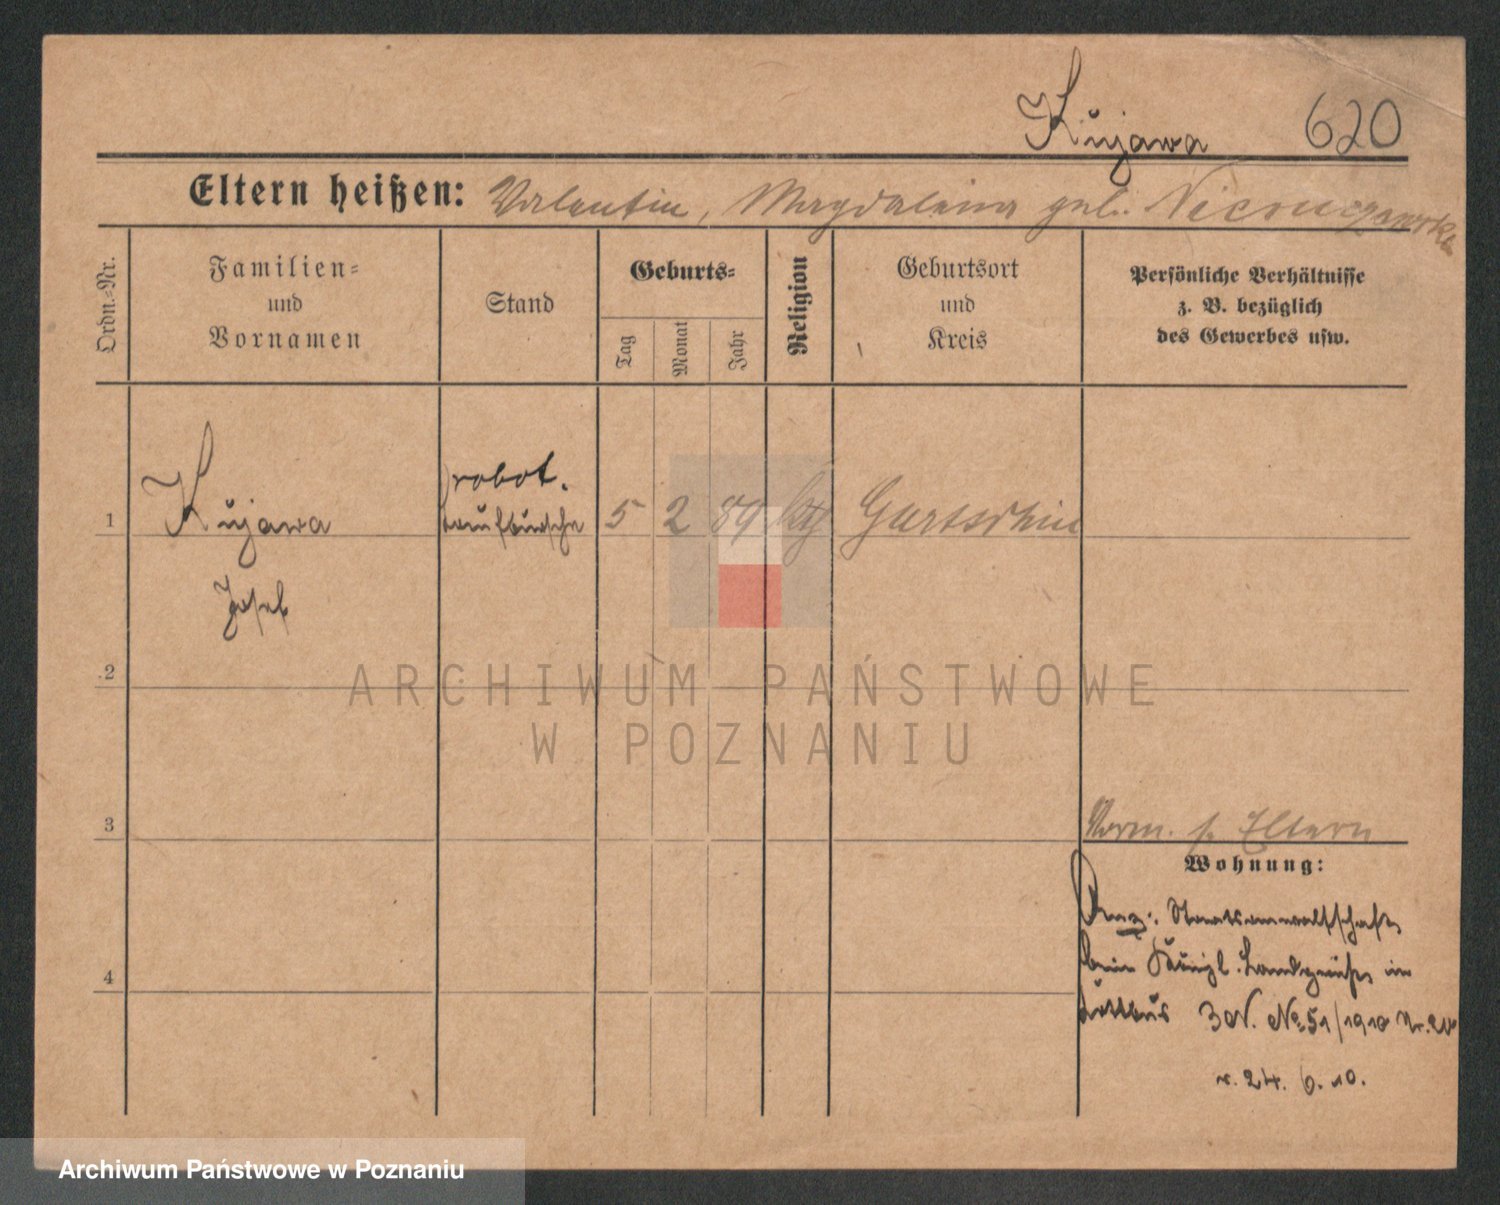 Kujawa 620
Eltern heißen: Valentin, Magdalena geb.
Ordn.=Nr.
Familien=
und
Vornamen
Stand
Geburts=
Tag
Monat
Jahr
Religion
Geburtsort
und
Kreis
Persönliche Verhältnisse
z. B. bezüglich
des Gewerbes usw.
robot.
1 Kujawa Laufbursche 5 2 89 kth Gurtschin
Josef
2
3 Verm. s. Eltern
Wohnung:
Staatsanwaltschaft
beim Königl. Landgericht in
4
Cottbus 3 No 51/1910 Nr.
v. 24. 6. 10.
ARCHIWUM PAŃSTWOWE
W POZNANIU
Archiwum Państwowe w Poznaniu